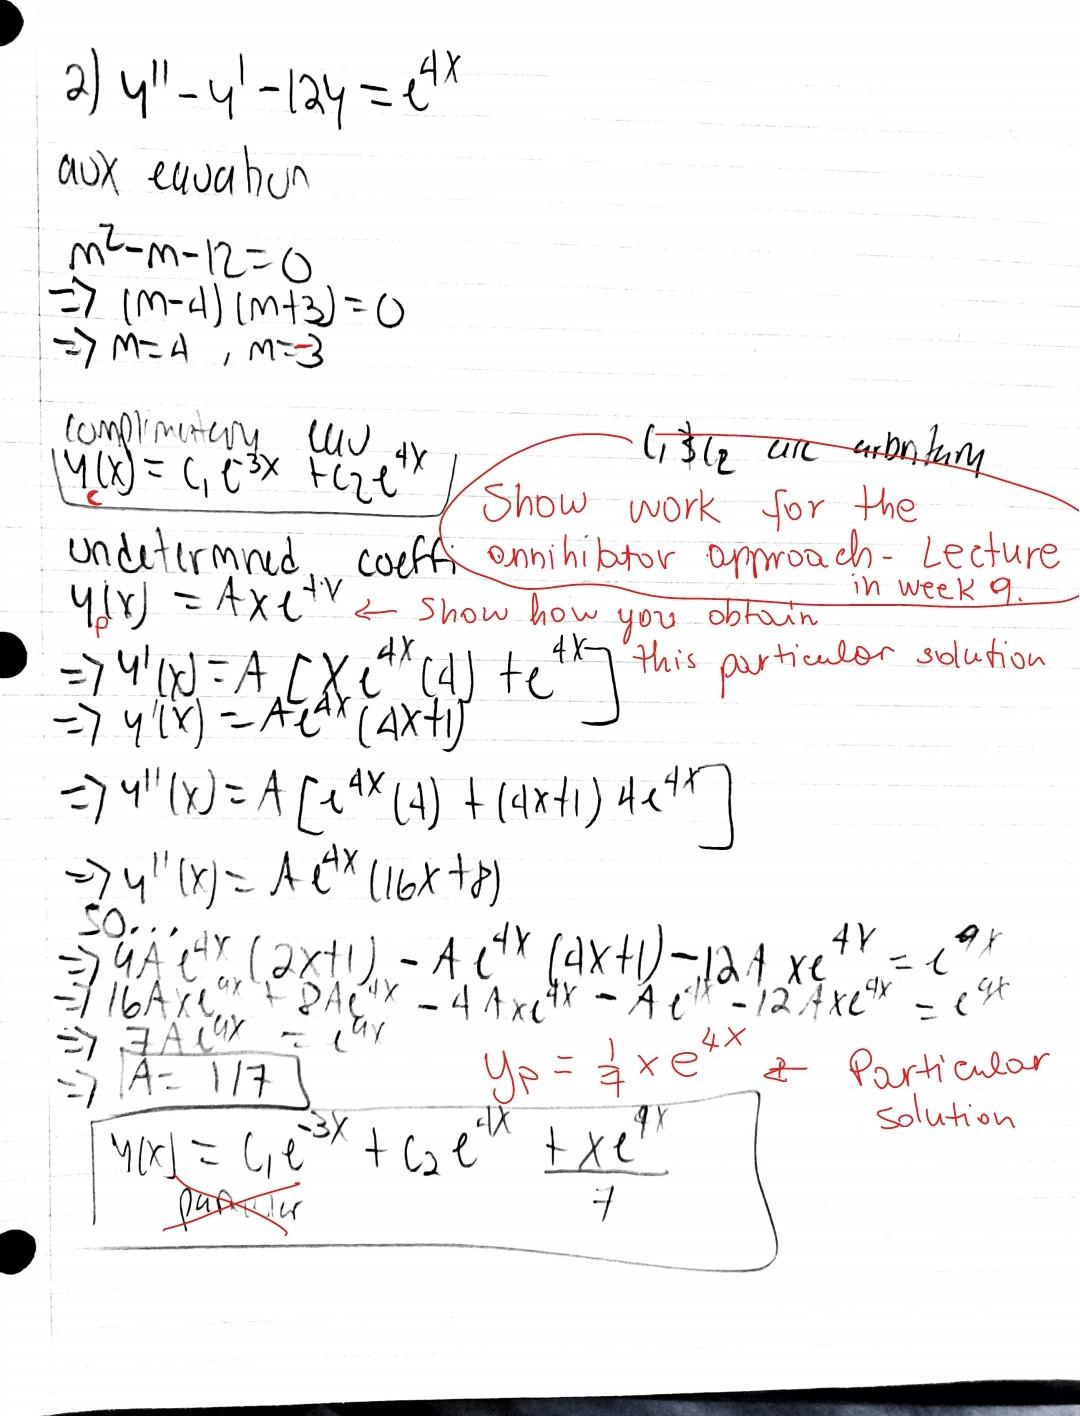 2) y'' - y' - 12y = e^4x
aux equation
m² - m - 12 = 0
=> (m-4)(m+3) = 0
=> m = 4 , m = -3
complimentary
C₁ & C₂ are arbitrary
y_c(x) = C₁e^-3x + C₂e^4x
Show work for the
annihilator approach - Lecture
in week 9.
undetermined coeffi
y_p(x) = Axe^4x ← Show how you obtain
this particular solution
=> y'(x) = A [xe^4x (4) + e^4x]
=> y'(x) = Ae^4x (4x+1)
=> y''(x) = A [e^4x (4) + (4x+1) 4e^4x]
=> y''(x) = Ae^4x (16x+8)
SO...
=> 4Ae^4x (2x+1) - Ae^4x (4x+1) - 12Axe^4x = e^4x
=> 16Axe^4x + 8Ae^4x - 4Axe^4x - Ae^4x - 12Axe^4x = e^4x
=> 7Ae^4x = e^4x
=> A = 1/7
y_p = 1/7 xe^4x ← Particular
solution
y(x) = C₁e^-3x + C₂e^4x + xe^4x/7